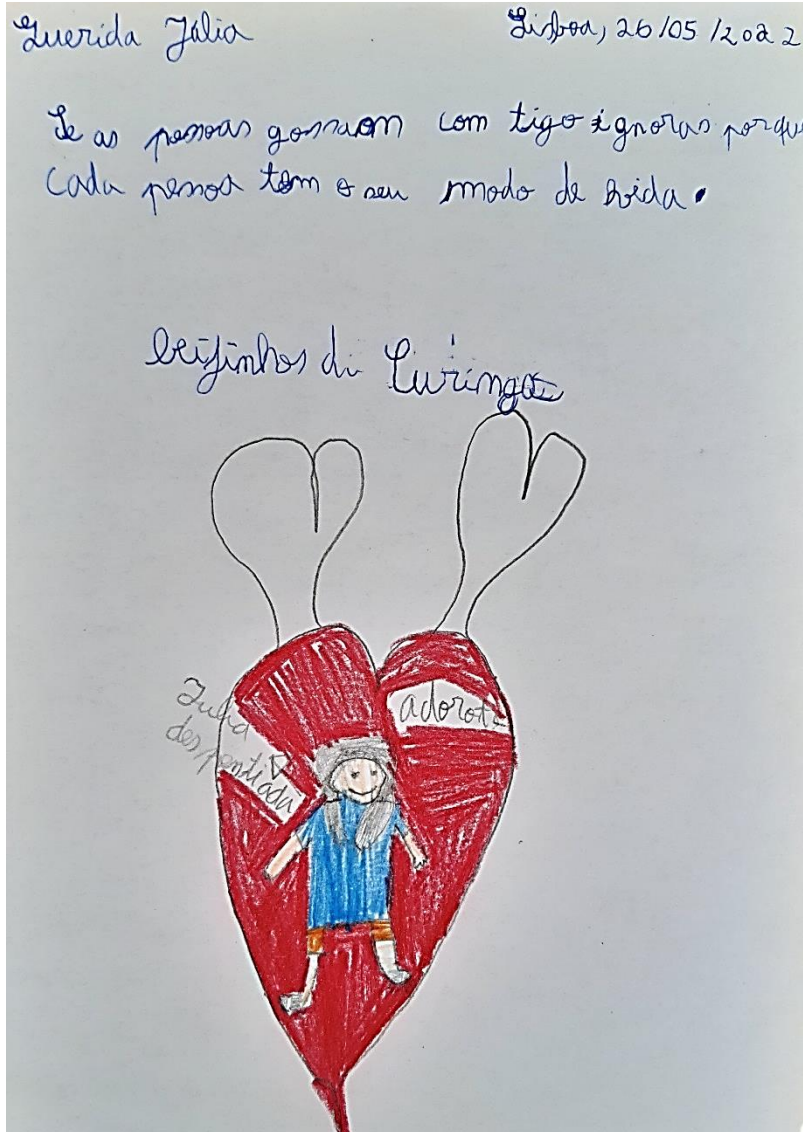 Querida Júlia
Lisboa, 26/05/2022
Se as pessoas gossarom com tigo ignoras porque
cada pessoa tem o seu modo de vida.
beijinhos di
Julia
despentiada
adorote